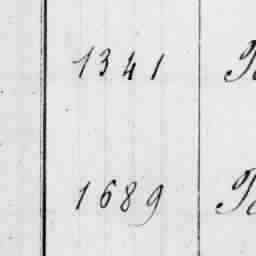 1341
1689